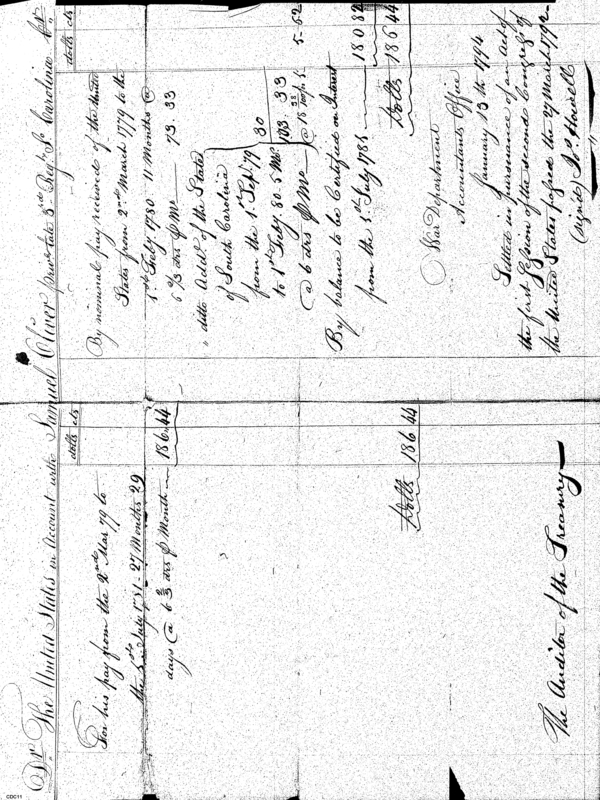 Dr. The United States in Account with Samuel Oliver private late 3d Regt. So. Carolina Cr.
dolls cts
For his pay from the 2nd Mar 79 to
the 1st July 1781 - 27 Months 29
days @ 6 2/3 drs ⅌ Month 186.44
Dolls 186 44
The Auditor of the Treasury
dolls cts
By nominal pay received of the United
States from 2nd March 1779 to the
1st Feby 1780 11 Months @
6 2/3 drs ⅌ Mo 73.33
" ditto Addl. of the State
of South Carolina
from the 1st Sept. 79 30
to 1st Feby. 80. 5 Mos.
@ 6 drs ⅌ Mo 103.33 @ 5.62
By balance to be Certified on Interest
from the 1st July 1781 180 82
Dolls 186 44
War Department
Accountants Office
January 13th 1794
Settled in pursuance of an Act of
the first Session of the second Congress of
the United States passed the 27 March 1792
(signed) Jos. Howell
CDC11